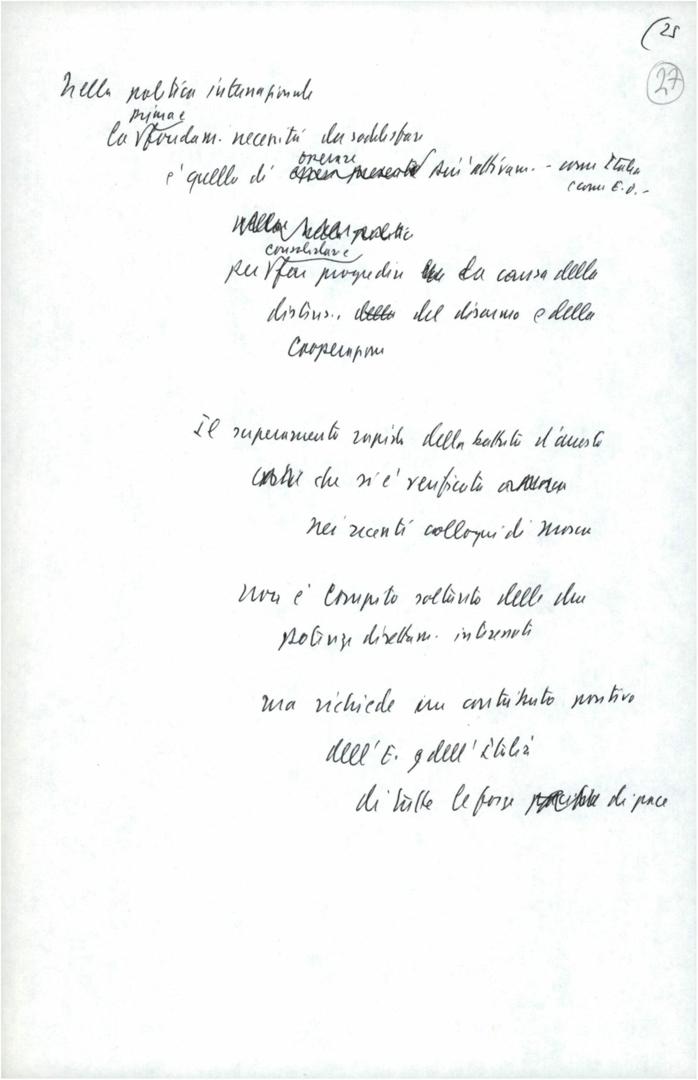 (25
27
Nella politica internazionale
prima e
la fondam. necessità da soddisfare
operare
è quella di essere presenti più attivam. - come Italia
e come E.O. -
Nella politica
consolidare
per far progredire la causa della
distens., della del disarmo e della
Cooperazione
Il superamento rapido della battuta d'arresto
che si è verificata
nei recenti colloqui di Mosca
non è compito soltanto delle due
potenze direttam. interessati
ma richiede un contributo positivo
dell'E. e dell'Italia
di tutte le forze di pace